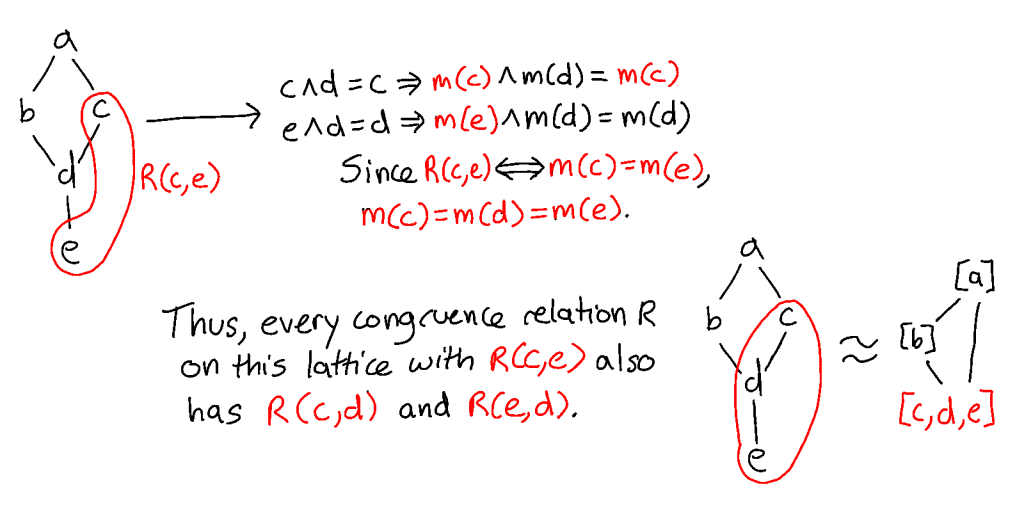 a
b
c
d
e
R(c,e)
c∧d=c⇒m(c)∧m(d)=m(c)
e∧d=d⇒m(e)∧m(d)=m(d)
Since R(c,e)⟺m(c)=m(e),
m(c)=m(d)=m(e).
Thus, every congruence relation R
on this lattice with R(c,e) also
has R(c,d) and R(e,d).
a
b
c
d
e
≈
[a]
[b]
[c,d,e]